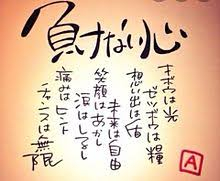 負けない心
キボウは光
ゼツボウは糧
想い出は宿
未来は自由
笑顔はあかし
涙はしるし
痛みはヒント
チャンスは無限
A